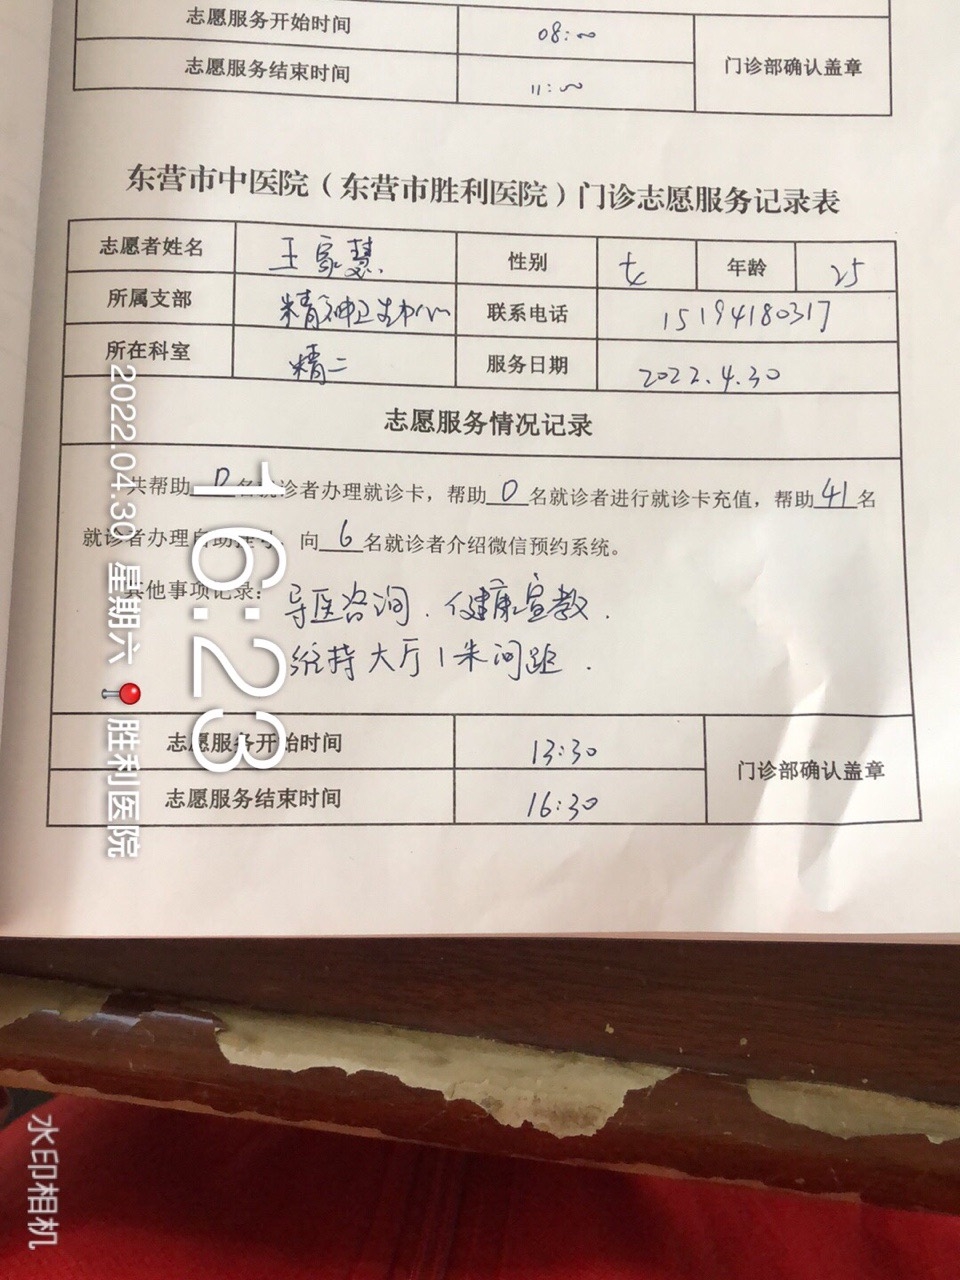 志愿服务开始时间 08:00
志愿服务结束时间 11:00
门诊部确认盖章
东营市中医院（东营市胜利医院）门诊志愿服务记录表
志愿者姓名 王家慧 性别 女 年龄 25
所属支部 精神卫生中心 联系电话 15194180317
所在科室 精二 服务日期 2022.4.30
志愿服务情况记录
共帮助0名就诊者办理就诊卡，帮助0名就诊者进行就诊卡充值，帮助41名
就诊者办理自助挂号，向6名就诊者介绍微信预约系统。
其他事项记录：导医咨询．健康宣教．
维持大厅1米间距．
志愿服务开始时间 13:30
志愿服务结束时间 16:30
门诊部确认盖章
16:23
2022.04.30 星期六 📍胜利医院
水印相机